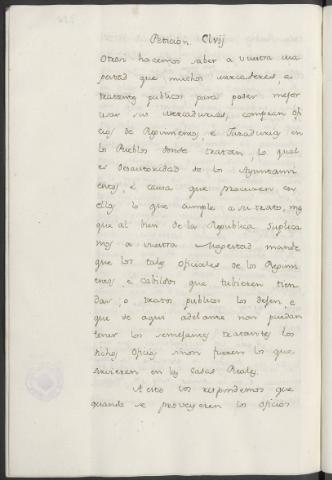 Petición. Clvij
Otrosi hacemos saber a vuestra ma
gestad que muchos mercaderes, e
tratantes publicos para poder mejor
usar sus mercadurias, compran ofi
cios de Regimientos, e Juradurias en
los Pueblos donde tratan, lo qual
es desautoridad de los Ayuntam
ientos, e causa que procuren con
ellos lo que cumple a su trato, mas
que al bien de la Republica suplica
mos a vuestra Magestad mande
que los tales oficiales de los Regimi
entos, e cabildos que tubieren tien
das, o tratos publicos los dejen, e
que de aqui adelante non puedan
tener los semejantes tratantes los
dichos oficios sinon fueren los que
sirvieren en las Casas Reales.
A esto los respondemos que
quando se proveyeren los oficios